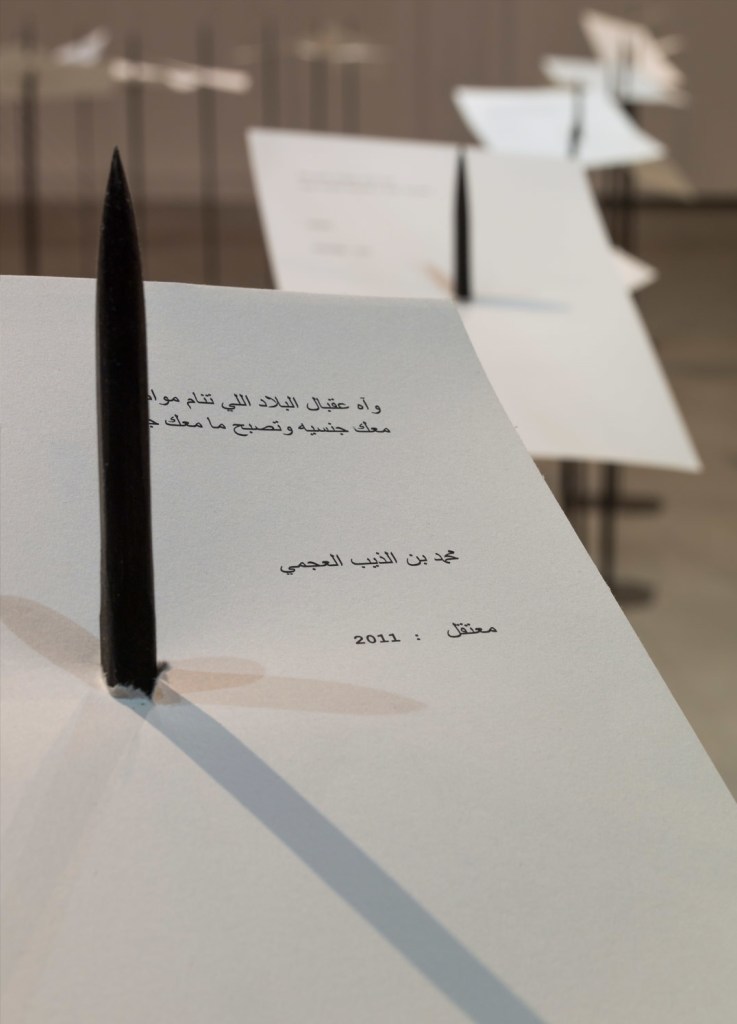 وآه عقبال البلاد اللي تنام
معك جنسيه وتصبح ما معك
محمد بن الذيب العجمي
معتقل : 2011